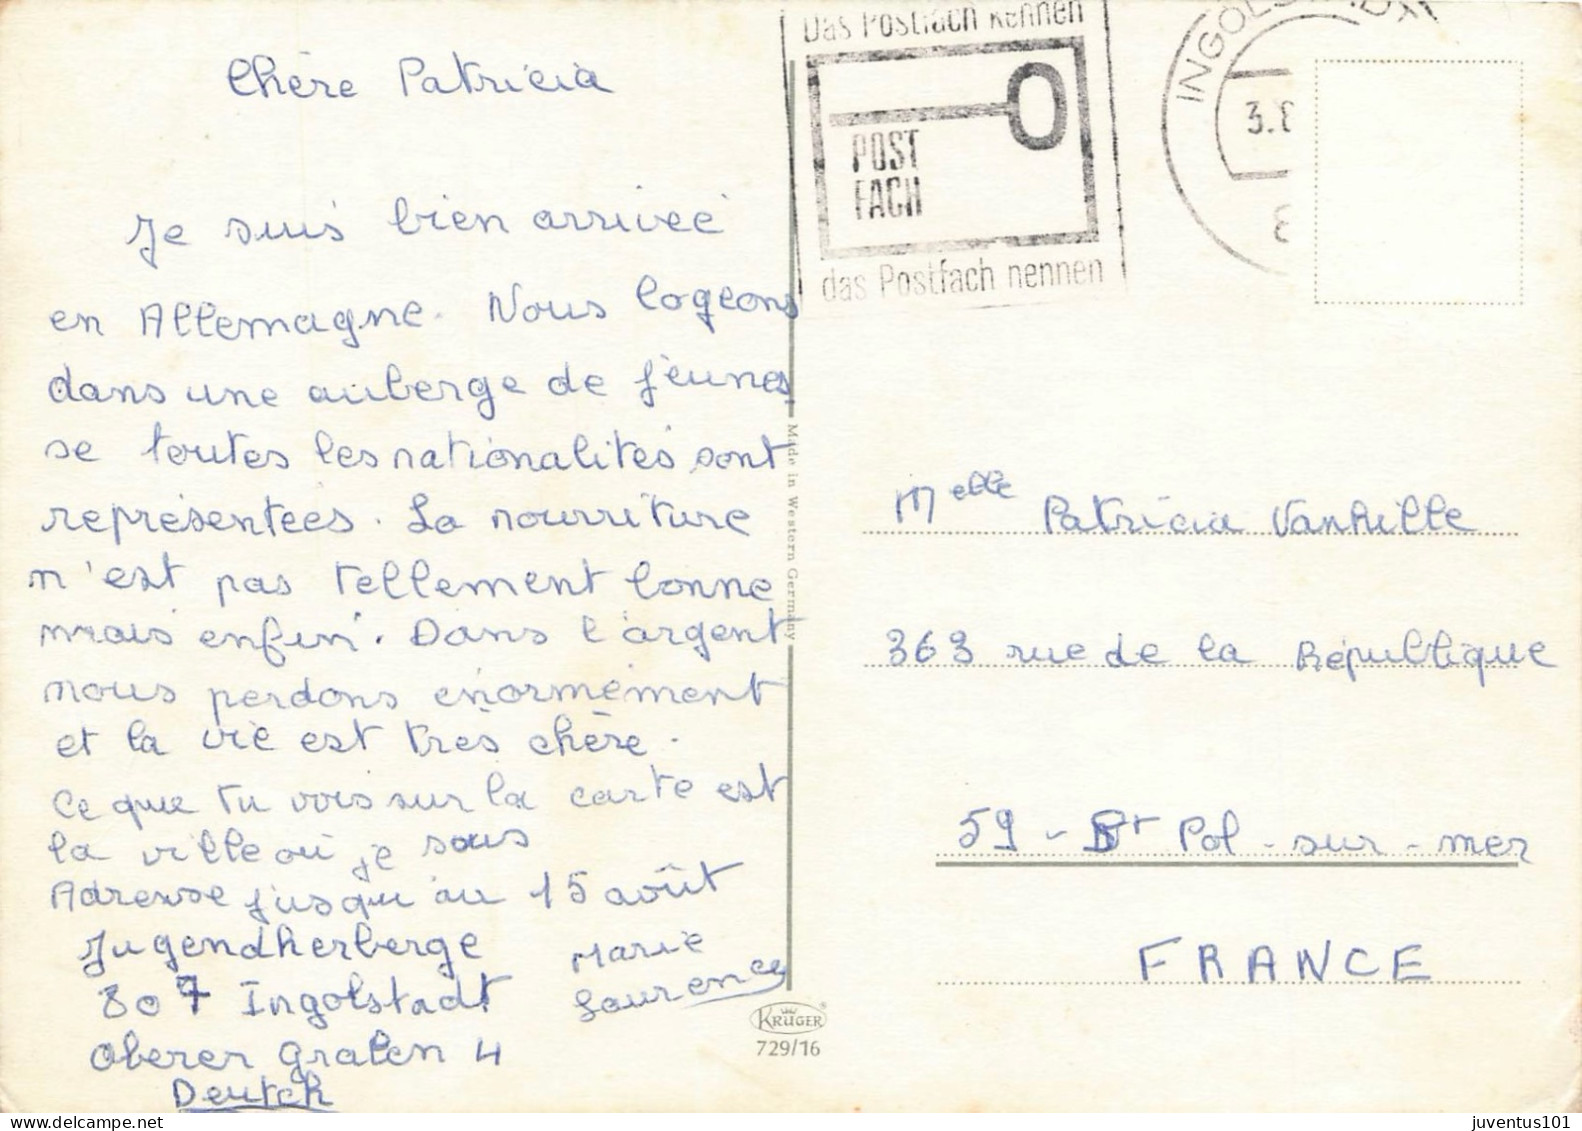 Chère Patricia
Je suis bien arrivée
en Allemagne. Nous logeons
dans une auberge de jeunes
se toutes les nationalités sont
représentées. La nourriture
n'est pas tellement bonne
mais enfin. Dans l'argent
nous perdons enormément
et la vie est très chère.
Ce que tu vois sur la carte est
la ville où je suis
Adresse jusqu'au 15 août
Jugendherberge
807 Ingolstadt
Oberer graben 4
Deutch
Marie
Laurence
Das Postfach kennen
POST
FACH
das Postfach nennen
INGOLSTADT
3.8
8
Made in Western Germany
KRÜGER
729/16
Melle Patricia Vanhille
363 rue de la République
59 - St Pol - sur - mer
FRANCE
juventus101